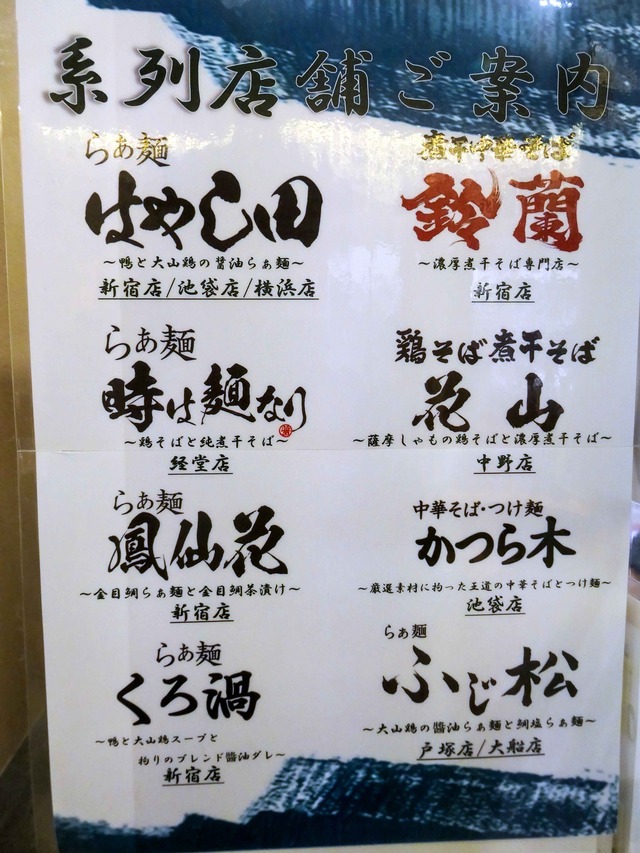 系列店舗ご案内
らぁ麺
はやし田
～鴨と大山鶏の醤油らぁ麺～
新宿店/池袋店/横浜店
煮干中華そば
鈴蘭
～濃厚煮干そば専門店～
新宿店
らぁ麺
時は麺なり
～鶏そばと純煮干そば～
経堂店
鶏そば煮干そば
花山
～薩摩しゃもの鶏そばと濃厚煮干そば～
中野店
らぁ麺
鳳仙花
～金目鯛らぁ麺と金目鯛茶漬け～
新宿店
中華そば・つけ麺
かつら木
～厳選素材に拘った王道の中華そばとつけ麺～
池袋店
らぁ麺
くろ渦
～鴨と大山鶏スープと
拘りのブレンド醤油ダレ～
新宿店
らぁ麺
ふじ松
～大山鶏の醬油らぁ麺と鯛塩らぁ麺～
戸塚店/大船店